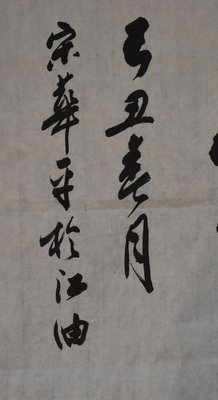 己丑春月
宋华平於江油